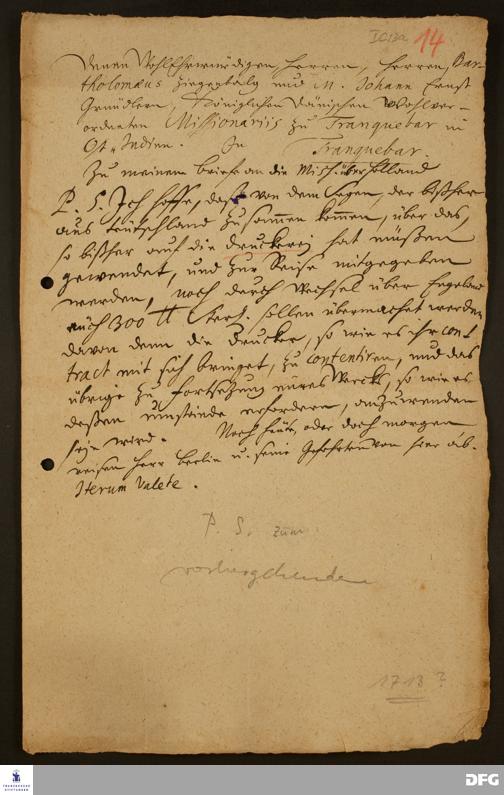 IC13a 14
Denen WohlEhrwürdigen Herren, Herren, Bar-
tholomæus Ziegenbalg und M. Johann Ernst
Gründlern, Königlichen Dänischen Wohlver-
ordneten Missionariis zu Tranquebar in
Ost-Indien. In Tranquebar.
Zu meinem briefe an die Miss. über Holland
P. S. Ich hoffe, daß von dem Segen, der bißher
aus Teutschland zusammen kommen, über das,
so bißher auf die druckerey hat müßen
gewendet, und zur Reise mitgegeben
werden, noch durch Wechsel über Engeland
auch 300 ℔ Sterl. sollen übermachet werden
davon denn die Drucker, so wie es ihr cont
tract mit sich bringet, zu contentiren, und das
übrige zu fortsetzung eures Wercks, so wie es
deßen umstände erfordern, anzuwenden
seyn wird. Noch heute, oder doch morgen
reisen Herr Berlin u. seine Gefehrten von hier ab.
Iterum Valete.
P. S. zum
vorhergehenden
1713?
FRANCKESCHE
STIFTUNGEN
DFG